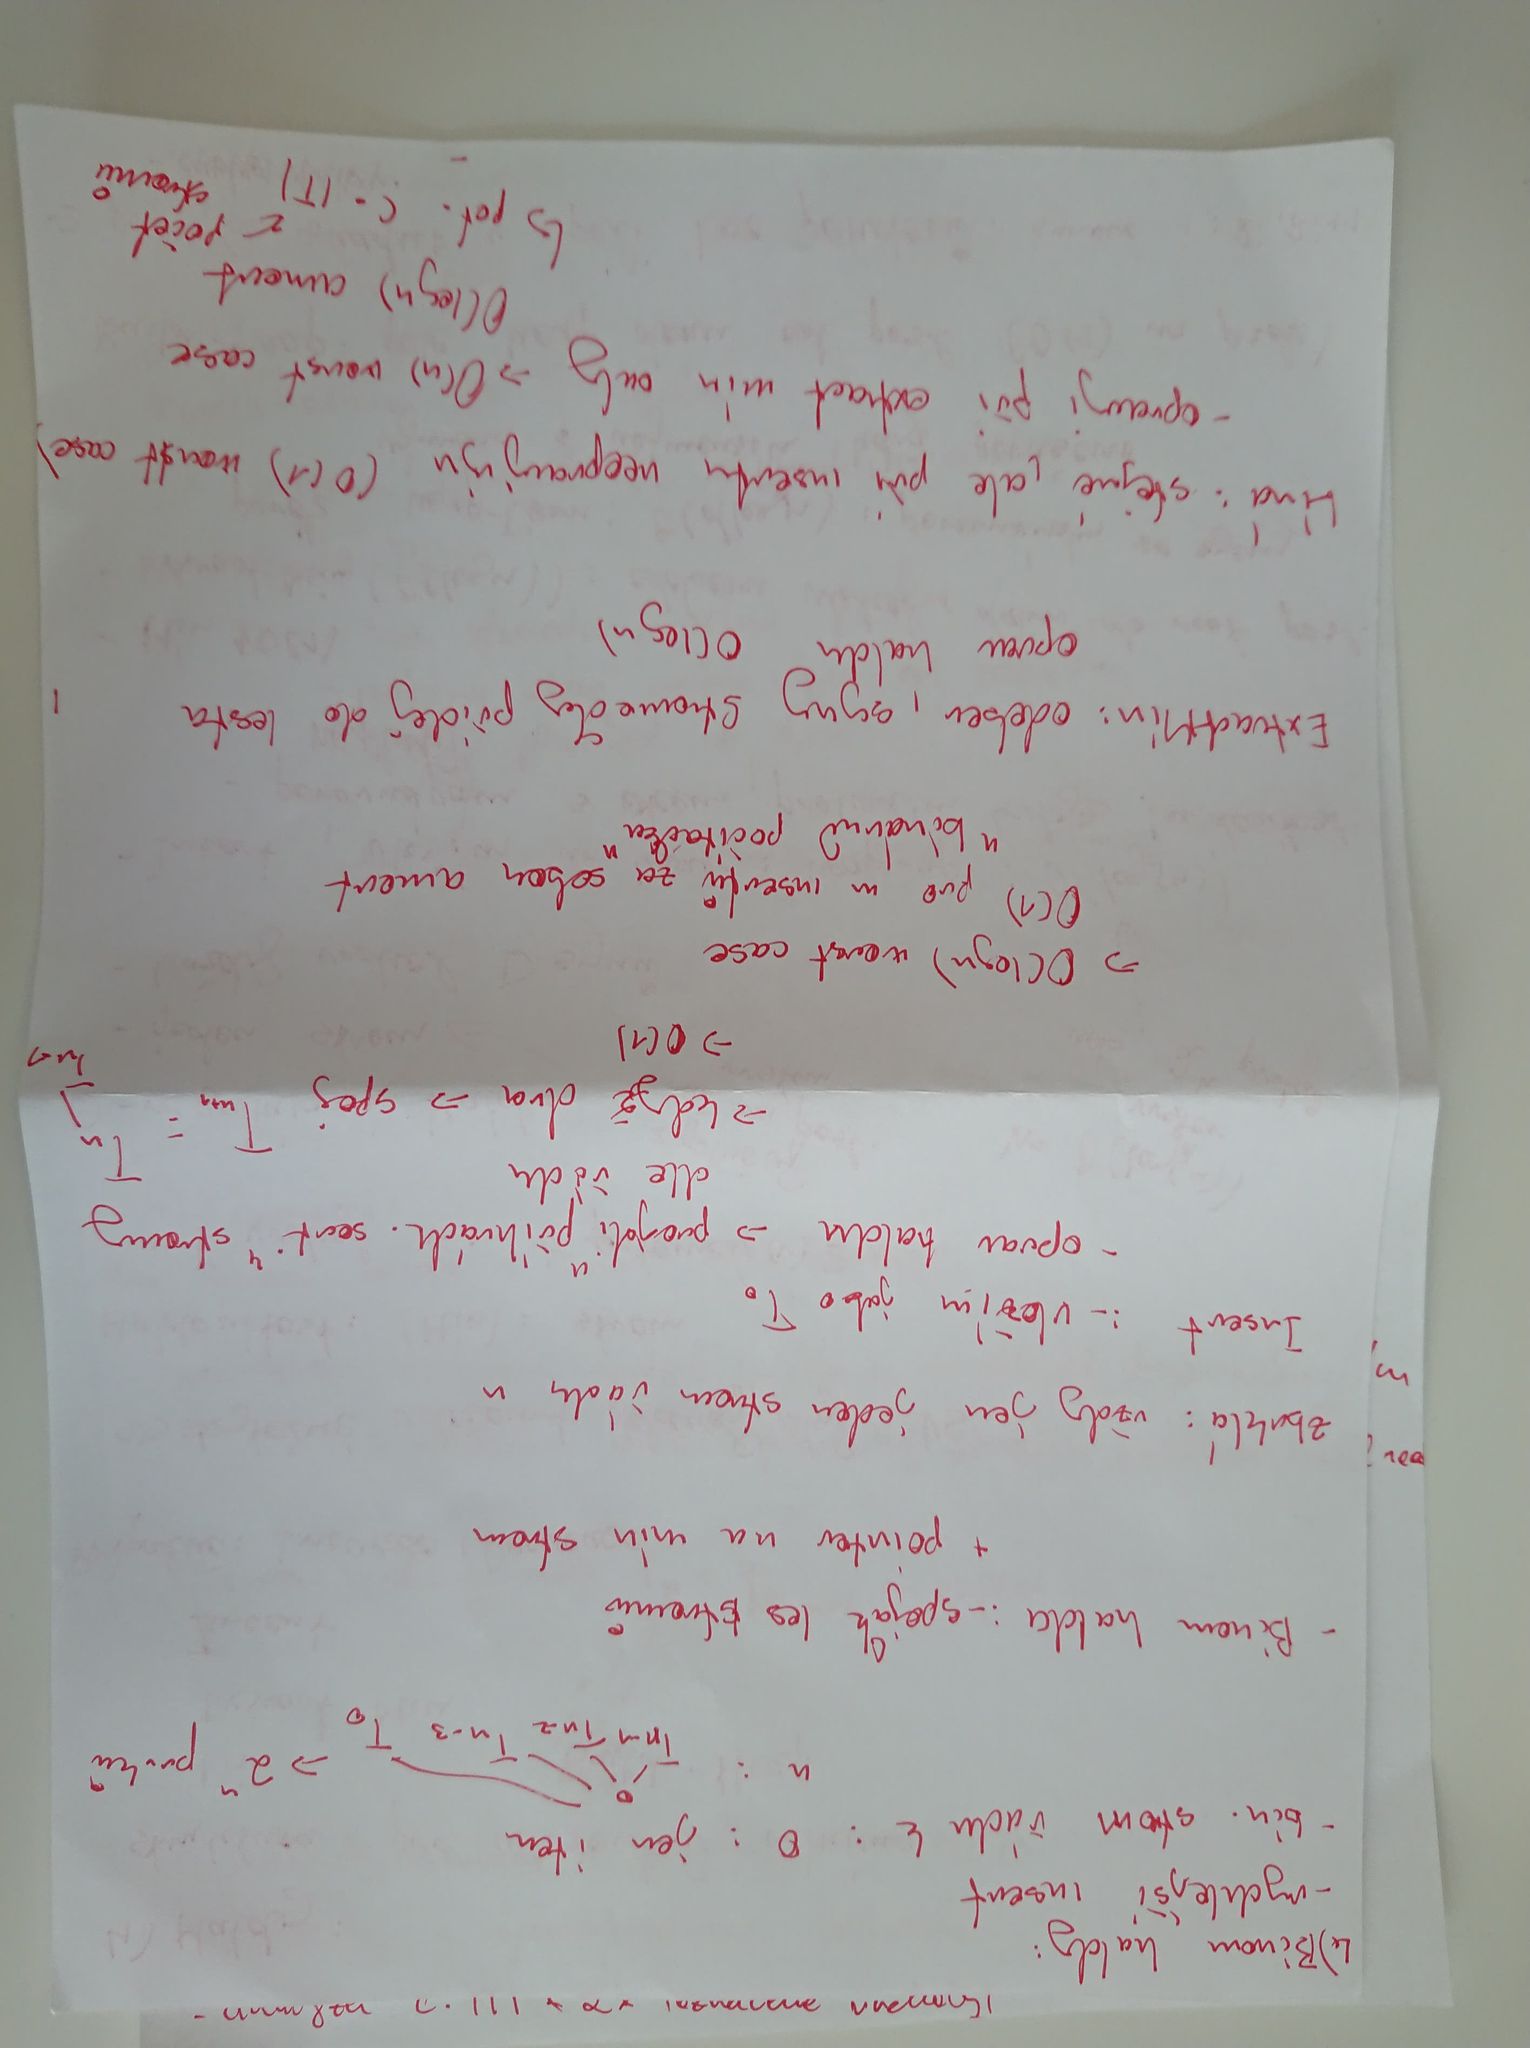 4) Binom haldy:
- rychlejší insert
- bin. strom řádu k : 0 : jen item
n : Tn-1 Tn-2 Tn-3 T0 => 2^n prvků
- Binom halda :- spoják les stromů
+ pointer na min strom
Zbrklá: vždy jen jeden strom řádu n
Insert :- vložím jako T0
- oprav haldu -> projdi "přihrádk. sort." stromy
dle řádu
-> když dva => spoj Tn+1 = Tn
Tn-1
-> O(1)
=> O(log n) worst case
O(1) pro m insertů za sebou amort
"binární počítačka"
ExtractMin: odeber, syny stromečky přidej do lesta
oprav haldu O(log n)
Líná: stejné, ale při insertu neopravuju (O(1) worst case)
- opravuji při extract min only -> O(n) worst case
O(log n) amort
↳ pot. c · |T| ← počet
stromů